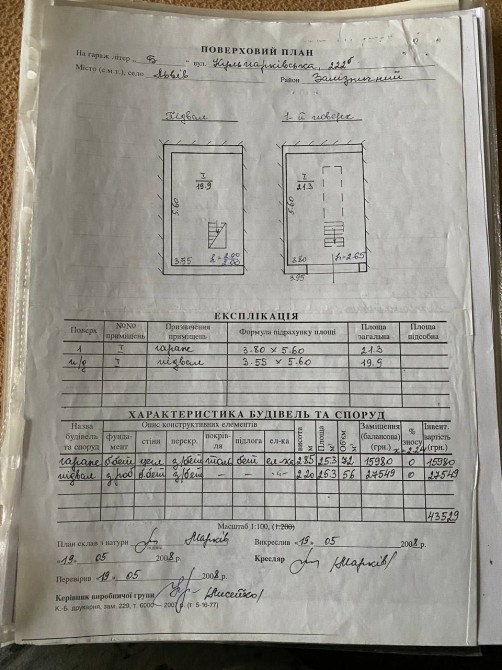 ПОВЕРХОВИЙ ПЛАН
На гараж літер „ Б " вул. Кульпарківська, 222б
Місто (с.м.т.), село Львів Район Залізничний
Підвал 1-й поверх
I I
19.9 21.3
5.60 5.60
3.55 h=2.00 3.80 h=2.65
3.55
ЕКСПЛІКАЦІЯ
Поверх №№ приміщень Призначення приміщень Формула підрахунку площі Площа загальна Площа підсобна
1 I гараж 3.80 x 5.60 21.3
п/д I підвал 3.55 x 5.60 19.9
ХАРАКТЕРИСТИКА БУДІВЕЛЬ ТА СПОРУД
Назва будівель та споруд Опис конструктивних елементів висота м Площа м² Об'єм м³ Заміщення (балансова) (грн.) % зносу Інвент. вартість (грн.)
фундамент стіни перекр. покрівля підлога ел-ка
гараж б.бет цегл з/бет толь бет ел-ка 2.85 25.3 72 15980 0 15980
підвал з/бет - - -"- 2.20 25.3 56 27549 0 27549
43529
Масштаб 1:100, (1:200)
План склав з натури Марків Викреслив «19» 05 2008 р.
«19» 05 2008 р. Кресляр (Марків)
Перевірив «19» 05 2008 р.
Керівник виробничої групи
К.-Б. друкарня, зам. 229, т. 6000 — 2007 р. (Г 5-16-77)